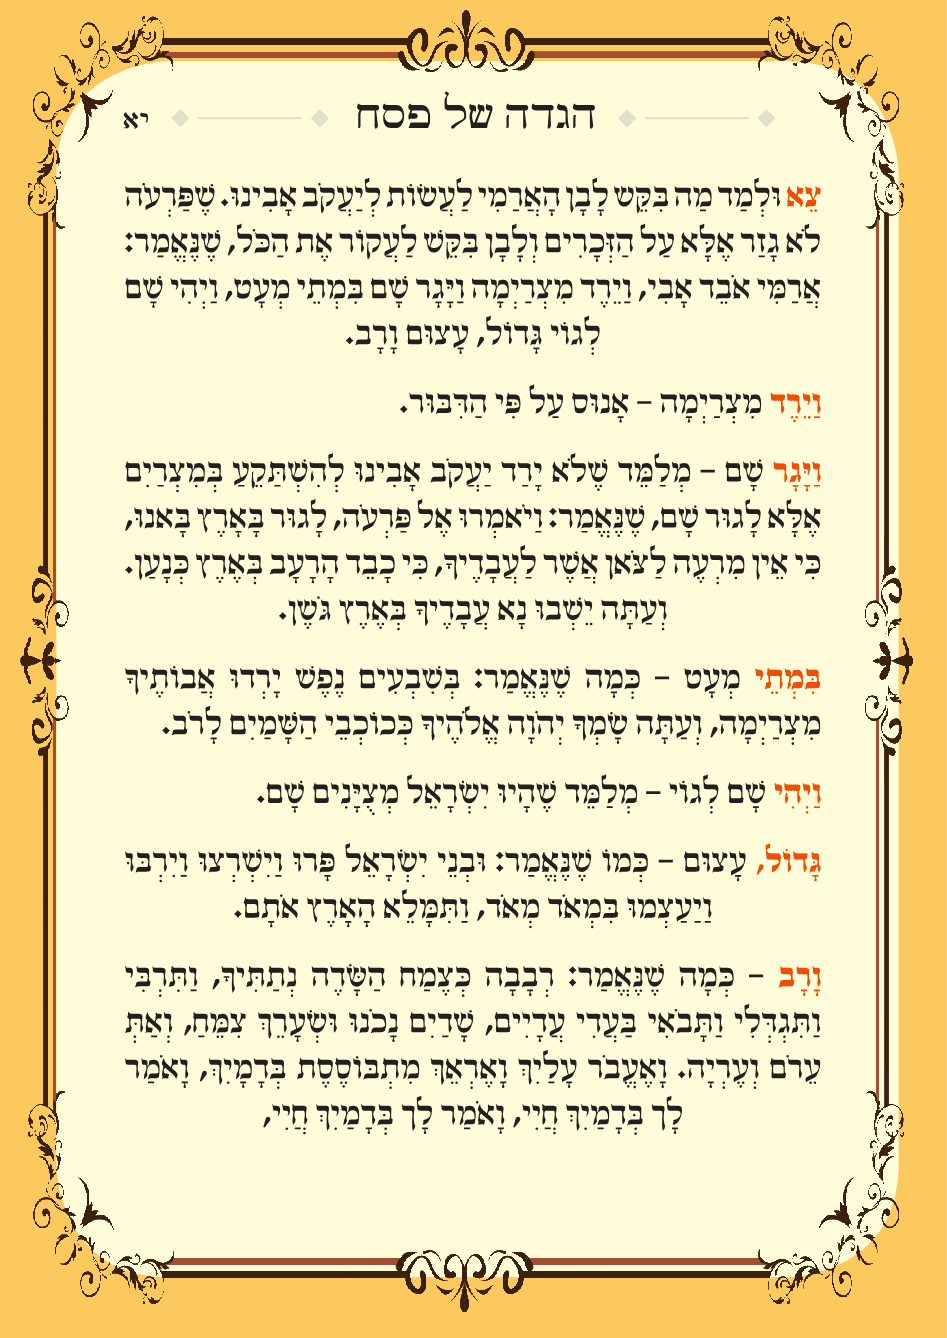 הגדה של פסח
יא
צֵא וּלְמַד מַה בִּקֵּש לָבָן הָאֲרַמִי לַעֲשׂוֹת לְיַעֲקֹב אָבִינוּ. שֶׁפַּרְעֹה
לֹא גָזַר אֶלָּא עַל הַזְּכָרִים וְלָבָן בִּקֵּשׁ לַעֲקוֹר אֶת הַכֹּל, שֶׁנֶּאֱמַר:
אֲרַמִּי אֹבֵד אָבִי, וַיֵּרֶד מִצְרַיְמָה וַיָּגָר שָׁם בִּמְתֵי מְעָט, וַיְהִי שָׁם
לְגוֹי גָּדוֹל, עָצוּם וָרָב.
וַיֵּרֶד מִצְרַיְמָה – אָנוּס עַל פִּי הַדִּבּוּר.
וַיָּגָר שָׁם – מְלַמֵּד שֶׁלֹא יָרַד יַעֲקֹב אָבִינוּ לְהִשְׁתַּקֵעַ בְּמִצְרַיִם
אֶלָּא לָגוּר שָׁם, שֶׁנֶּאֱמַר: וַיֹּאמְרוּ אֶל פַּרְעֹה, לָגוּר בָּאָרֶץ בָּאנוּ,
כִּי אֵין מִרְעֶה לַצֹּאן אֲשֶׁר לַעֲבָדֶיךָ, כִּי כָבֵד הָרָעָב בְּאֶרֶץ כְּנָעַן.
וְעַתָּה יֵשְׁבוּ נָא עֲבָדֶיךָ בְּאֶרֶץ גֹּשֶׁן.
בִּמְתֵי מְעָט – כְּמָה שֶׁנֶּאֱמַר: בְּשִׁבְעִים נֶפֶשׁ יָרְדוּ אֲבוֹתֶיךָ
מִצְרַיְמָה, וְעַתָּה שָׂמְךָ יְהֹוָה אֱלֹהֶיךָ כְּכוֹכְבֵי הַשָּׁמַיִם לָרֹב.
וַיְהִי שָׁם לְגוֹי – מְלַמֵּד שֶׁהָיוּ יִשְׂרָאֵל מְצֻיָּנִים שָׁם.
גָּדוֹל, עָצוּם – כְּמוֹ שֶׁנֶּאֱמַר: וּבְנֵי יִשְׂרָאֵל פָּרוּ וַיִּשְׁרְצוּ וַיִּרְבּוּ
וַיַּעַצְמוּ בִּמְאֹד מְאֹד, וַתִּמָּלֵא הָאָרֶץ אֹתָם.
וָרָב – כְּמָה שֶׁנֶּאֱמַר: רְבָבָה כְּצֶמַח הַשָּׂדֶה נְתַתִּיךְ, וַתִּרְבִּי
וַתִּגְדְּלִי וַתָּבֹאִי בַּעֲדִי עֲדָיִים, שָׁדַיִם נָכֹנוּ וּשְׂעָרֵךְ צִמֵּחַ, וְאַתְּ
עֵרֹם וְעֶרְיָה. וָאֶעֱבֹר עָלַיִךְ וָאֶרְאֵךְ מִתְבּוֹסֶסֶת בְּדָמָיִךְ, וָאֹמַר
לָךְ בְּדָמַיִךְ חֲיִי, וָאֹמַר לָךְ בְּדָמַיִךְ חֲיִי,